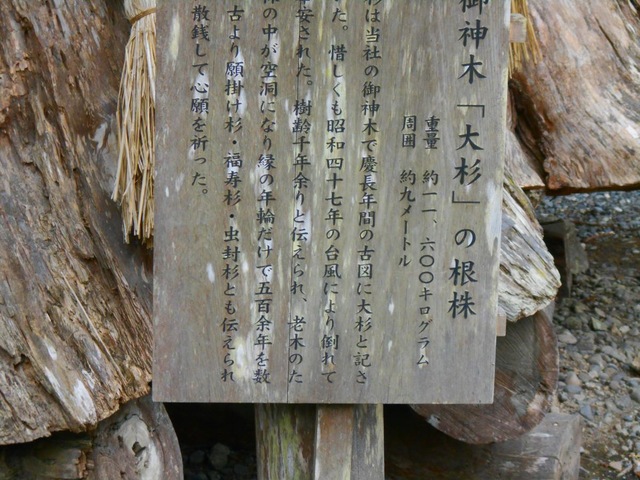 御神木「大杉」の根株
重量 約一一、六〇〇キログラム
周囲 約九メートル
杉は当社の御神木で慶長年間の古図に大杉と記さ
た。惜しくも昭和四十七年の台風により倒れて
安された。樹齢千年余りと伝えられ、老木のた
の中が空洞になり縁の年輪だけで五百余年を数
古より願掛け杉・福寿杉・虫封杉とも伝えられ
散銭して心願を祈った。